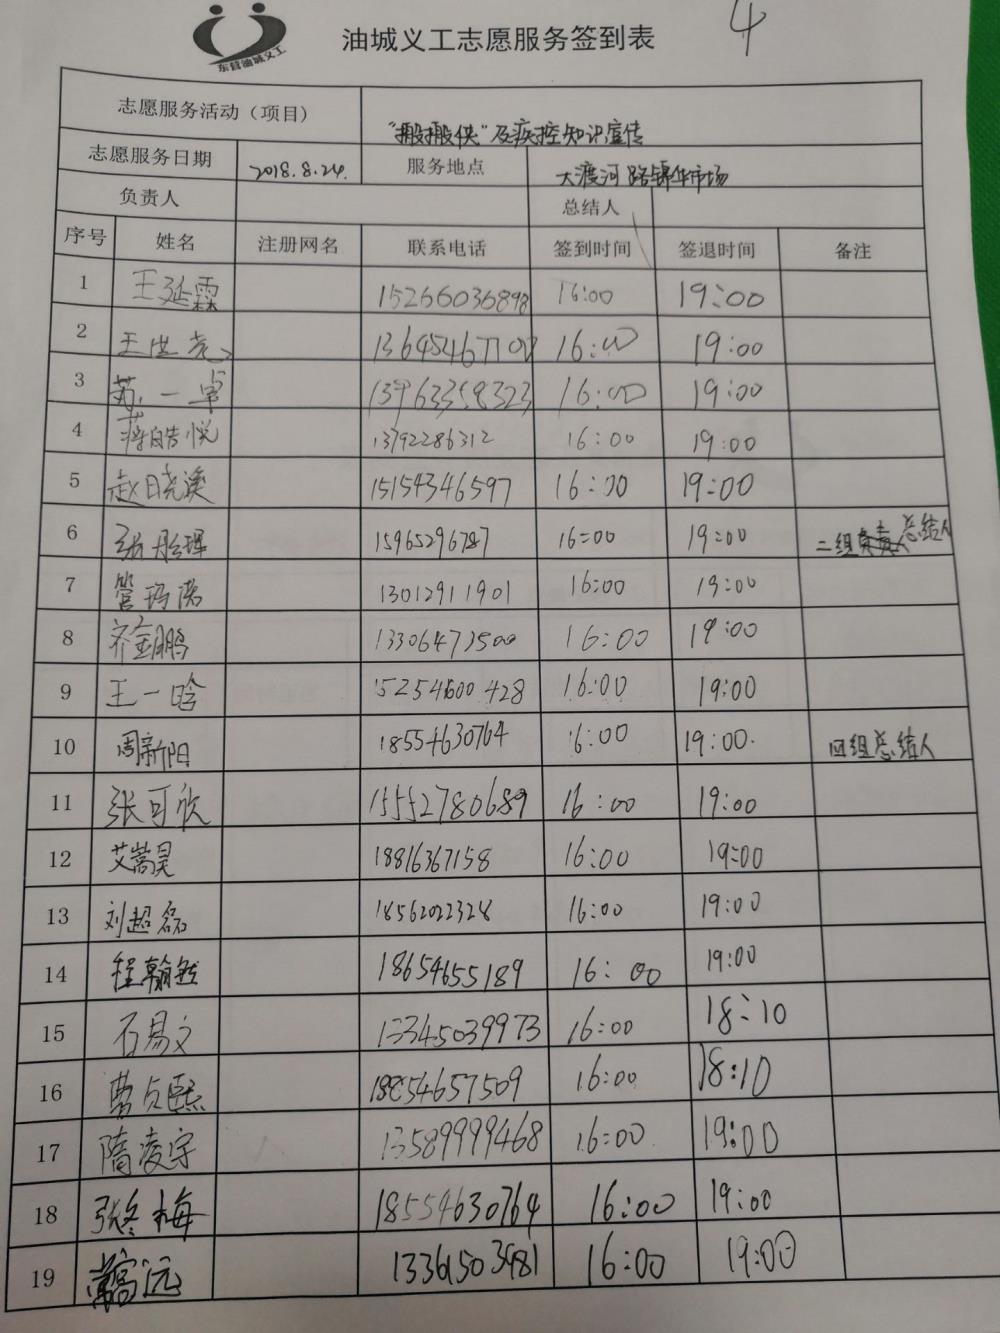 东营油城义工
油城义工志愿服务签到表
4
志愿服务活动（项目） "搬搬侠"及疾控知识宣传
志愿服务日期 2018.8.24. 服务地点 大渡河路锦华市场
负责人 总结人
序号 姓名 注册网名 联系电话 签到时间 签退时间 备注
1 王延霖 15266036898 16:00 19:00
2 王世尧 16:00 19:00
3 苏一卓 13963358323 16:00 19:00
4 蒋皓悦 13792286312 16:00 19:00
5 赵日晓溪 15154346597 16:00 19:00
6 15965296787 16:00 19:00 二组总结人
7 管玛诺 13012911901 16:00 19:00
8 齐金鹏 13306473500 16:00 19:00
9 王一晗 15254600428 16:00 19:00
10 周新阳 18554630764 16:00 19:00. 四组总结人
11 张可欣 15552780689 16:00 19:00
12 艾嵩昊 18816367158 16:00 19:00
13 刘超磊 18562022328 16:00 19:00
14 程翰然 18654655189 16:00 19:00
15 石易文 13345039973 16:00 18:10
16 曹贞熙 18854657509 16:00 18:10
17 隋凌宇 13589999468 16:00 19:00
18 张冬梅 18554630764 16:00 19:00
19 16:00 19:00